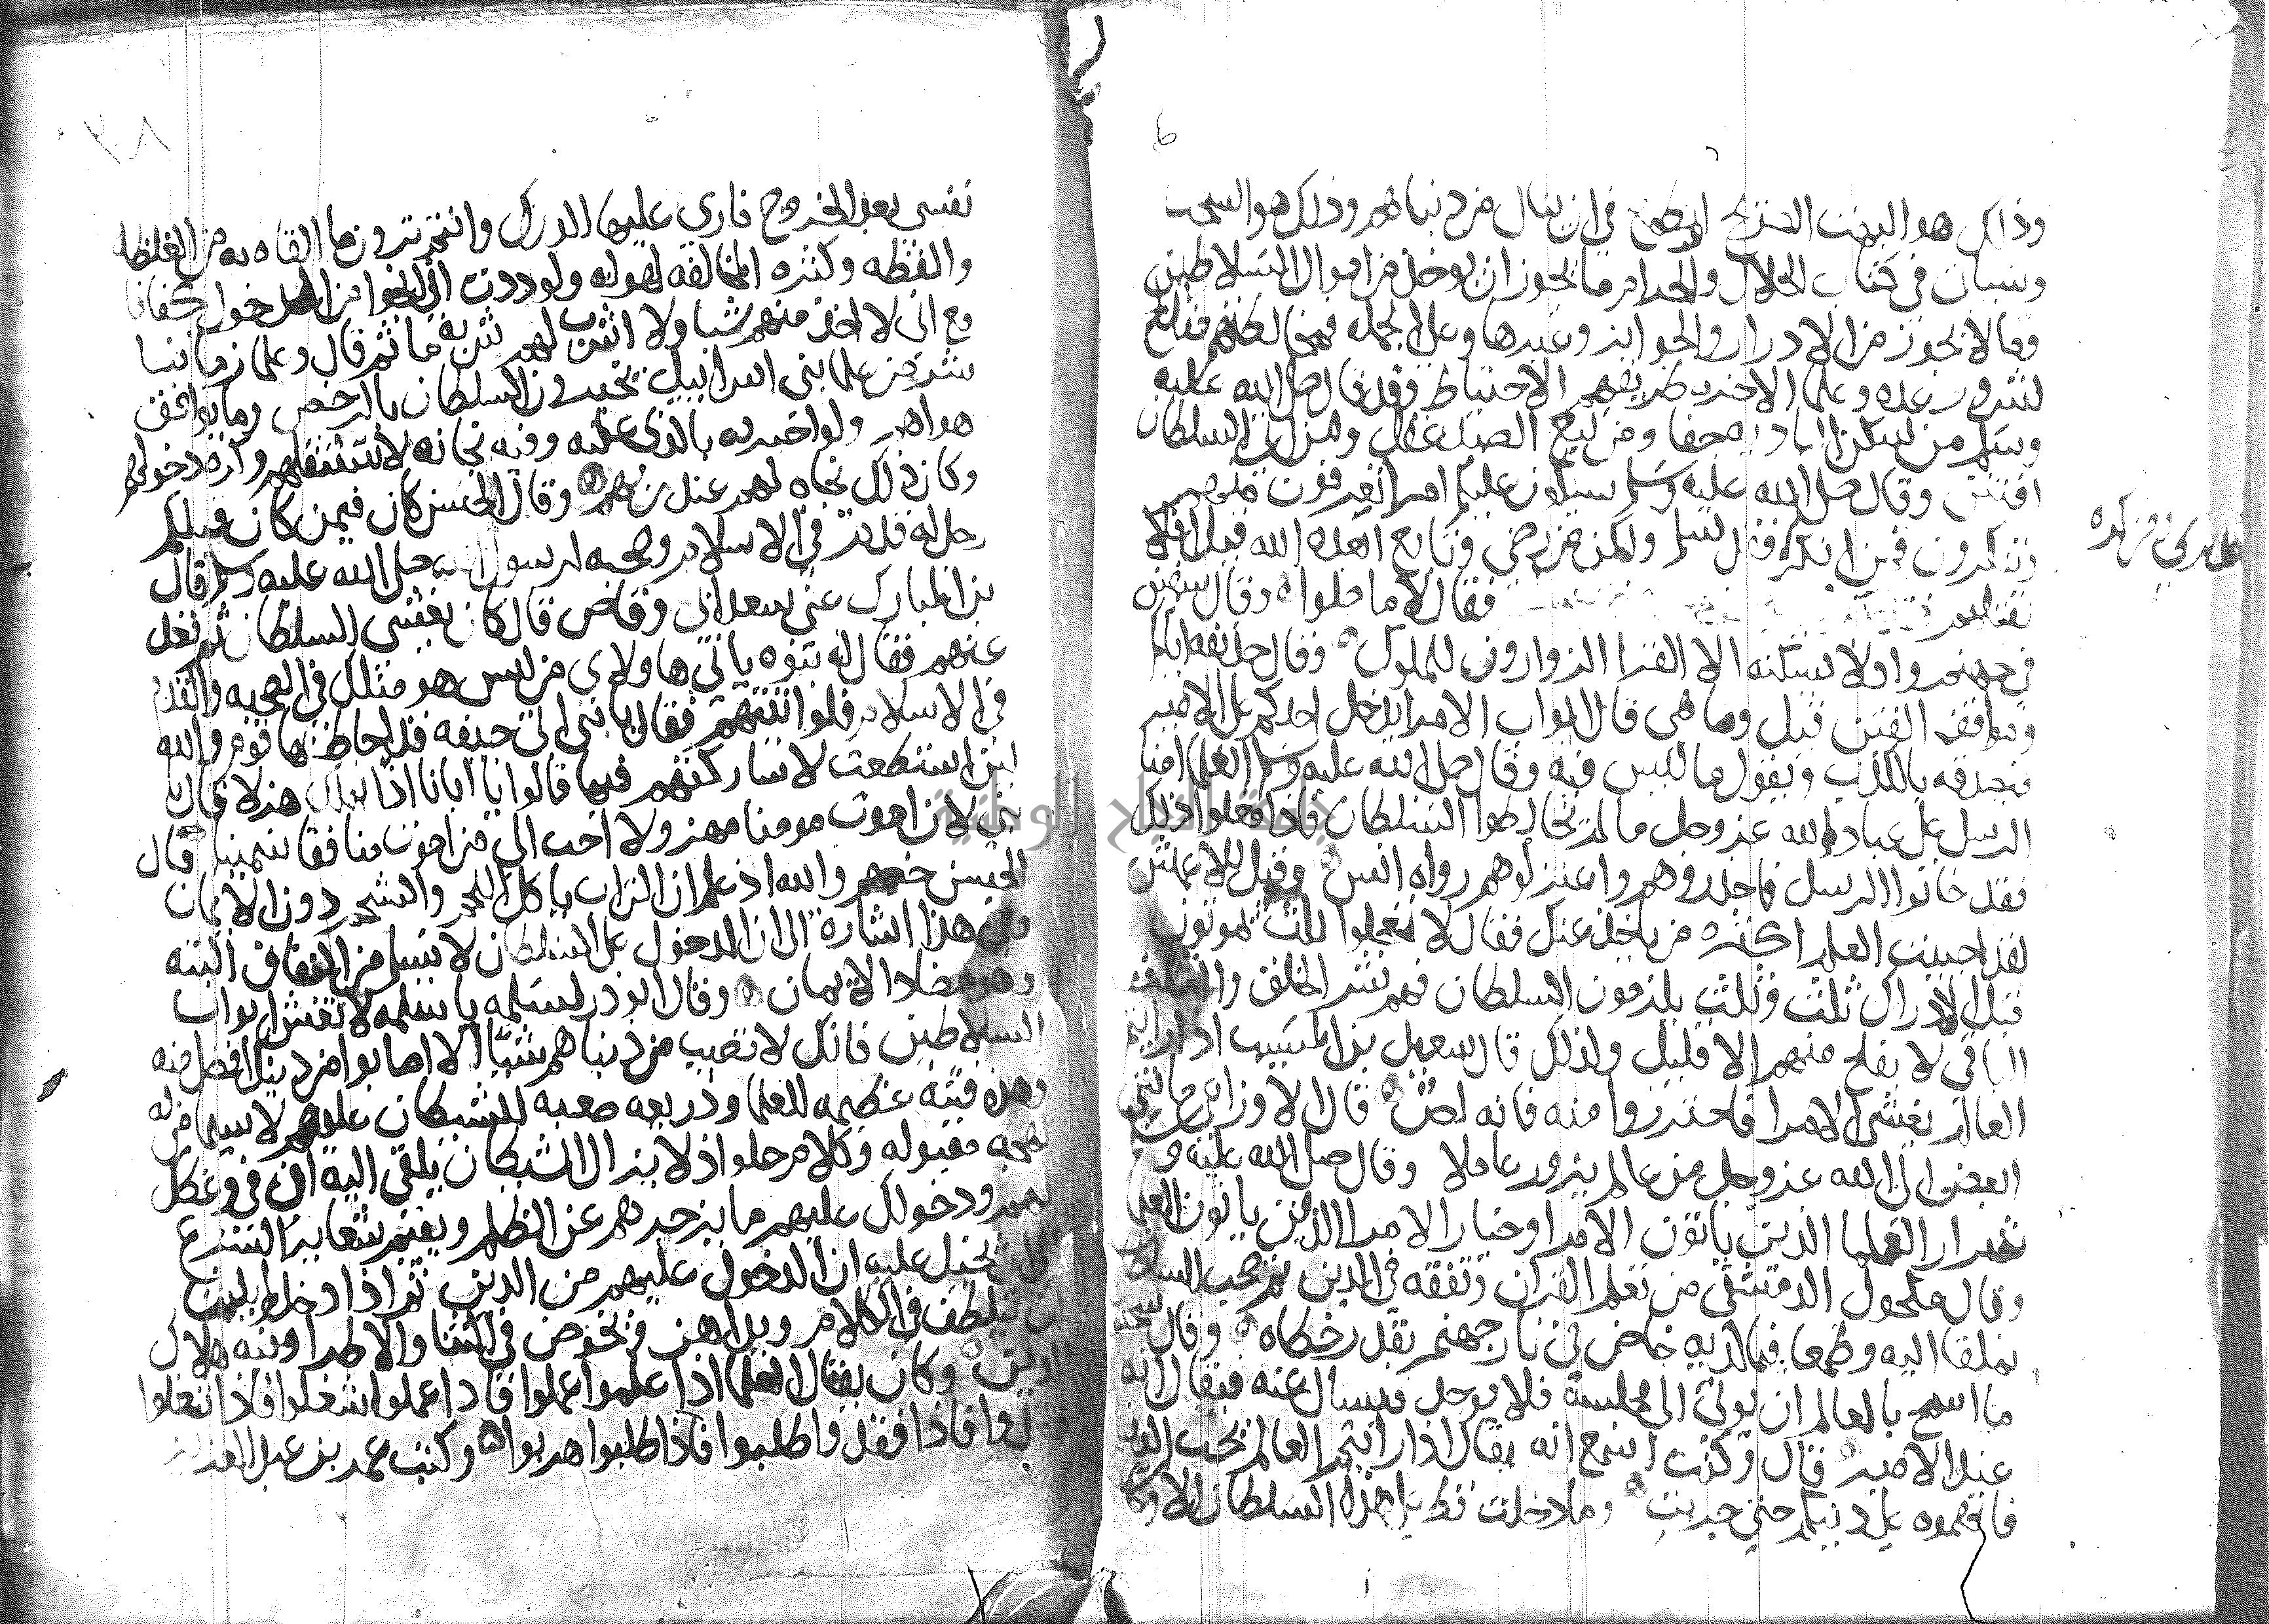 وذلك هو البهت الصريح او يطمع في ان ينال من دنياهم وذلك هو السحت
وسياتي في كتاب الحلال والحرام ما يجوز ان يوخذ من اموال السلاطين
وما لا يجوز من الادرار والجوايز وغيرها وعلى الجمله فمخالطتهم مفتاح
لشرور عده وعلما الاخره طريقهم الاحتياط وقد قال صلى الله عليه
وسلم من سكن الباديه جفا ومن تبع الصيد غفل ومن اتى السلطان
افتتن وقال صلى الله عليه وسلم سيكون عليكم امرا تعرفون منهم
وتنكرون فمن انكر فقد سلم ولكن من رضي وتابع ابعده الله قيل افلا
نقتلهم فقال لا ما صلوا وقال سفين
في جهنم واد لا يسكنه الا القرا الزوارون للملوك وقال حذيفه اياكم
ومواقف الفتن قيل وما هي قال ابواب الامرا يدخل احدكم على الامير
فيصدقه بالكذب ويقول ما ليس فيه وقال صلى الله عليه وسلم العلما امنا
الرسل على عباد الله عز وجل ما لم يخالطوا السلطان فاذا فعلوا ذلك
فقد خانوا الرسل فاحذروهم واعتزلوهم رواه انس وقيل للاعمش
لقد احييت العلم لكثره من ياخذ عنك فقال لا تعجلوا ثلث يموتون
قبل الادراك ثلث وثلث يلزمون السلطان فهم شر الخلق والثلث
الباقي لا يفلح منهم الا قليل ولذلك قال سعيد بن المسيب اذا رايتم
العالم يغشى الامرا فاحترزوا منه فانه لص قال الاوزاعي ما شي
ابغض الى الله عز وجل من عالم يزور عاملا وقال صلى الله عليه وسلم
شرار العلما الذين ياتون الامرا وخيار الامرا الذين ياتون العلما
وقال مكحول الدمشقي من تعلم القران وتفقه في الدين ثم صحب السلطان
تملقا اليه وطمعا فيما لديه خاض في نار جهنم بقدر خطاه وقال سحنون
ما اسمج بالعالم ان يوتى الى مجلسه فلا يوجد فيسال عنه فيقال انه
عند الامير قال وكنت اسمع انه يقال اذا رايتم العالم يحب الدنيا
فاتهموه على دينكم حتى جربت وما دخلت قط على هذا السلطان الا و
نفسي بعد الخروج فارى عليها الدرك وانتم ترون ما القاه به من الغلظه
والفظه وكثره المخالفه لهواه ولوددت اني انجوا من الدخول كفافا
مع اني لا اخذ منهم شيا ولا اشرب لهم شربه ما ثم قال وعلما زماننا
شر من علما بني اسرائيل يخبرون السلطان بالرخص وما يوافق
هواه ولو اخبروه بالذي عليه وفيه نجاته لاستثقلهم وكره دخولهم
وكان ذلك نجاه لهم عند ربهم وقال الحسن كان فيمن كان قبلكم
رجل له قدم في الاسلام وصحبه لرسول الله صلى الله عليه وسلم قال
بن المبارك عنى سعد ابن ابي وقاص قال كان يغشى السلطان ثم قعد
عنهم فقال له بنوه ياتي هاولاي من ليس هو مثلك في الصحبه والقدم
في الاسلام فلو اتيتهم فقال يا بني اتي جيفه قد احاط بها قوم والله
لين استطعت لا شاركتهم فيها قالوا يا ابانا اذا تهلك هزلا قال يا
بني لان اموت مومنا مهزولا احب الي من اموت منافقا سمينا قال
الحسن خصمهم والله اذ علم ان التراب ياكل اللحم والشحم دون الايمان
وفي هذا اشاره الى ان الدخول على السلطان لا يسلم من النفاق البته
وهو مضاد الايمان وقال ابو ذر لسلمه يا سلمه لا تغش ابواب
السلاطين فانك لا تصيب من دنياهم شيا الا اصابوا من دينك افضل منه
وهذه فتنه عظيمه للعلما وذريعه صعبه للشيطان عليهم لا سيما من له
لهجه مقبوله وكلام حلو اذ لا يزال الشيطان يلقي اليه ان في وعظك
لهم ودخولك عليهم ما يزجرهم عن الظلم ويقيم شعاير الشرع
الى ان يخيل عليه ان الدخول عليهم من الدين ثم اذا دخل لم يلبث
ان يتلطف في الكلام ويداهن ويخوض في الثنا والاطرا وفيه هلاك
الدين وكان يقال العلما اذا علموا عملوا فاذا عملوا شغلوا فاذا شغلوا
فقدوا فاذا فقدوا طلبوا فاذا طلبوا هربوا وكتب عمر بن عبد العزيز